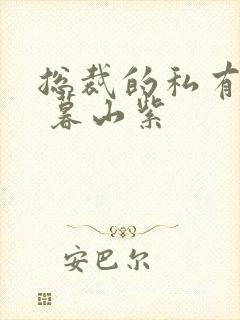 总裁的私有
暮山紫
安巴尔